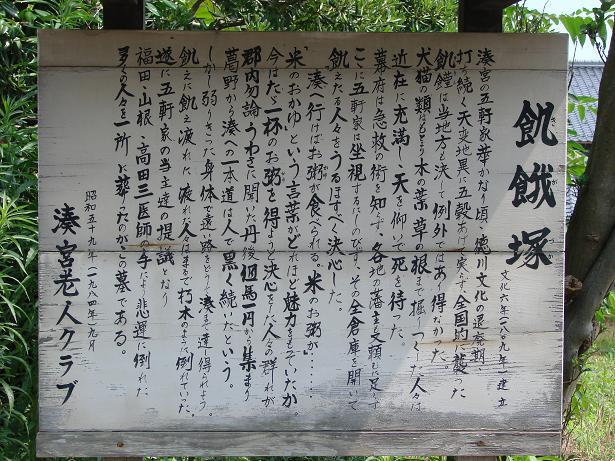 飢餓塚
文化六年(一八〇九年)建立
湊宮の五軒家華かなり頃、徳川文化の退廃期、
打ち続く天変地異に五穀あい実らず、全国的に襲った
飢饉は当地方も決して例外ではあり得なかった。
犬猫の類はもとより木の葉、草の根まで掘りつくした人々は
近在に充満し天を仰いで死を待った。
幕府は急救の術を知らず、各地の藩主も又頼むに足らず
こゝに五軒家は坐視するにしのびず、その全倉庫を開いて
飢えたる人々をうるほすべく決心した。
「湊へ行けばお粥が食べられる、米のお粥が」……
“米のおかゆ”という言葉がどれほど魅力をもっていたか。
今はたゞ一杯のお粥を得ようと決心をした人々の群れが
郡内勿論うわさに聞いた丹後、但馬、円から集まり
葛野から湊への一本道は人で黒く続いたという。
しかし弱りきった身体で遠路をたどって湊まで達し得られよう。
飢えに飢え疲れに疲れた人々はまるで朽木のように倒れていった。
遂に五軒家の当主達の提議となり
福田・山根・高田三医師の手により悲運に倒れた
多くの人々を一所に葬りたのがこの墓である。
昭和五十九年(一九八四年)九月
湊宮老人クラブ